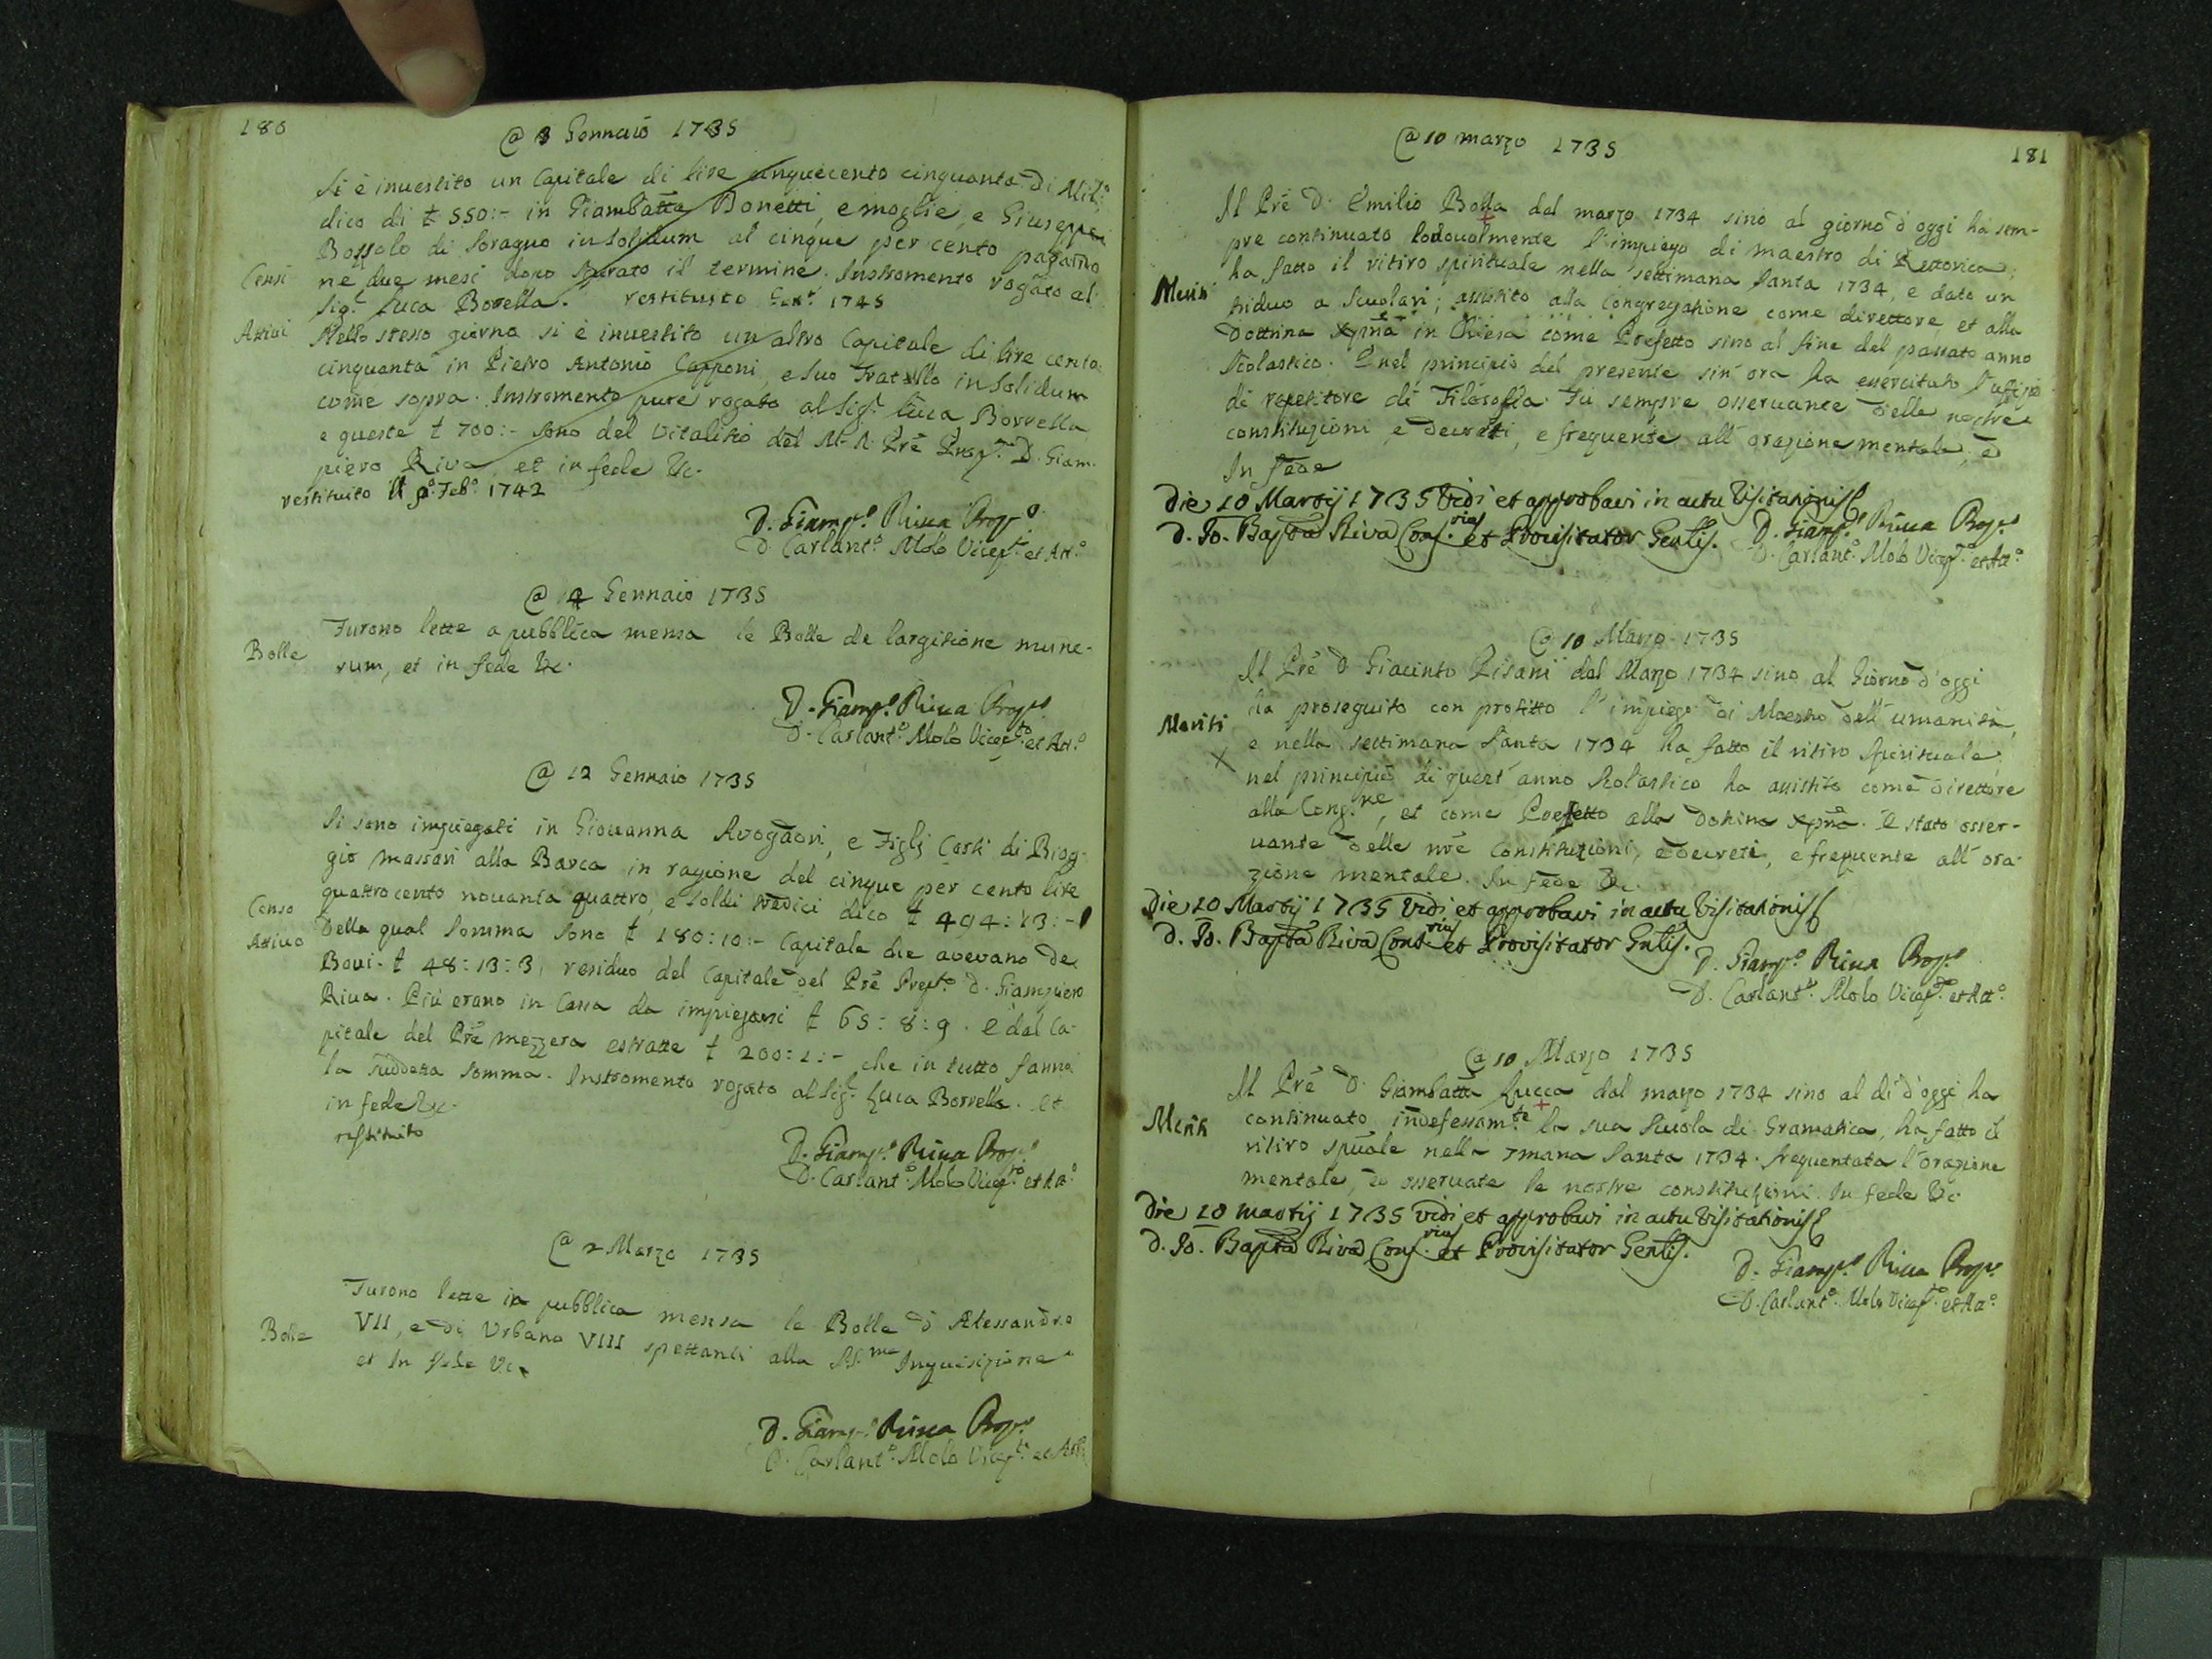 180
@ 3 Gennaio 1735
Si è investito un Capitale di lire cinquecento cinquanta di Mil.º
dico di ł 550:- in Giambatta Bonetti, e moglie, e Giuseppe
Bossolo di Soragno in solidum al cinque per cento
Censi
ne due mesi dopo spirato il termine. Instromento rogato al
Sig.r Luca Borella. restituito Gen.º 1745
Attivi
Nello stesso giorno si è investito un altro Capitale di lire cento
cinquanta in Pietro Antonio Capponi, e suo Fratello in solidum
come sopra. Instromento pure rogato al Sig.r Luca Borrella
e queste ł 700:- sono del Vitalitio del M. R. Prē Prep.to D. Giam-
piero Riva et in fede &c.
restituito il pº Febº 1742
D. Giamp.º Riva Prop.º
D. Carlant.º Molo Vicep.to et Att.º
@ 12 Gennaio 1735
Bolle
Furono lette a pubblica mensa le Bolle de largitione mune-
rum, et in fede &c.
D. Giamp.º Riva Prop.º
D. Carlant.º Molo Vicep.to et Att.º
@ 12 Gennaio 1735
Si sono impiegati in Giovanna Avogadori, e Figli Casti di Biog-
gio massari alla Barca in ragione del cinque per cento lire
quattrocento novanta quattro, e soldi tredici dico ł 494:13:-
Censo
Attivo
Della qual somma sono ł 180:10:- Capitale che avevano de
Bovi. ł 48:13:3, residuo del Capitale del Prē Prep.to D. Giampiero
Riva. Più erano in Cassa da impiegarsi ł 65:8:9. E dal Ca-
pitale del Prē Mezzera estratte ł 200:1:- che in tutto fanno
la suddetta somma. Instromento rogato al Sig.r Luca Borrella. et
in fede &c.
restituito
D. Giamp.º Riva Prop.º
D. Carlant.º Molo Vicep.to et Att.º
@ 2 Marzo 1735
Furono lette in pubblica mensa le Bolle d'Alessandro
Bolle
VII, e di Urbano VIII spettanti alla SS.ma Inquisizione
et In fede &c.
D. Giamp.º Riva Prop.º
D. Carlant.º Molo Vicep.to et Att.º
181
@ 10 marzo 1735
Il Prē D. Emilio Bolla dal marzo 1734 sino al giorno d'oggi ha sem-
pre continuato lodevolmente l'impiego di maestro di Rettorica;
ha fatto il ritiro spirituale nella settimana santa 1734, e dato un
Meriti
triduo a Scolari; assistito alla Congregatione come direttore et alla
Dottrina Xpnā in Chiesa come Prefetto sino al fine del passato anno
scolastico. E nel principio del presente sin ora ha esercitato l'uffizio
di repetitore di Filosofia. Fù sempre osservante delle nostre
constituzioni e decreti, e frequente all'orazione mentale, ed
In fede
Die 10 Martij 1735 Vidi et approbavi in actu Visitationis
D. Jo. Bapta Riva Cons.rius et Provisitator Genlis.
D. Giamp.º Riva Prop.º
D. Carlant.º Molo Vicep.to et Att.º
@ 10 Marzo 1735
Il Prē D. Giacinto Pisani dal Marzo 1734 sino al Giorno d'oggi
ha proseguito con profitto l'impiego di Maestro dell'umanità,
Meriti
e nella settimana santa 1734 ha fatto il ritiro spirituale;
X
nel principio di quest'anno scolastico ha assistito come direttore
alla Cong.ne, et come Prefetto alla Dottrina Xpnā. È stato osser-
vante delle nrē Constituzioni, e decreti, e frequente all'ora-
zione mentale. In fede &c.
Die 10 Martij 1735 Vidi et approbavi in actu Visitationis
D. Jo. Bapta Riva Cons.rius et Provisitator Gnlis.
D. Giamp.º Riva Prop.º
D. Carlant.º Molo Vicep.to et Att.º
@ 10 Marzo 1735
Il Prē D. Giambatta Lucca dal marzo 1734 sino al dì d'oggi ha
Meriti
continuato indefessam.te la sua scuola di Gramatica, ha fatto il
ritiro spūale nella 7mana santa 1734. frequentata l'orazione
mentale, et osservate le nostre constituzioni. In fede &c.
Die 10 martij 1735 vidi et approbavi in actu Visitationis
D. Jo. Bapta Riva Cons.rius et Provisitator Genlis.
D. Giamp.º Riva Prop.º
D. Carlant.º Molo Vicep.to et Att.º